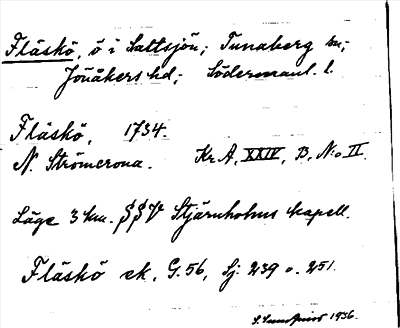 Fläskö, ö i Saltsjön; Tunaberg sn;
Jönåkers hd; Södermanl. l.
Fläskö, 1734.
N. Strömcrona. Kr. A, XXIV, B, N:o II.
Läge 3 km. SSV Stjärnholms kapell.
Fläskö ek. G. 56, Sj: 239 o. 251.
1936.